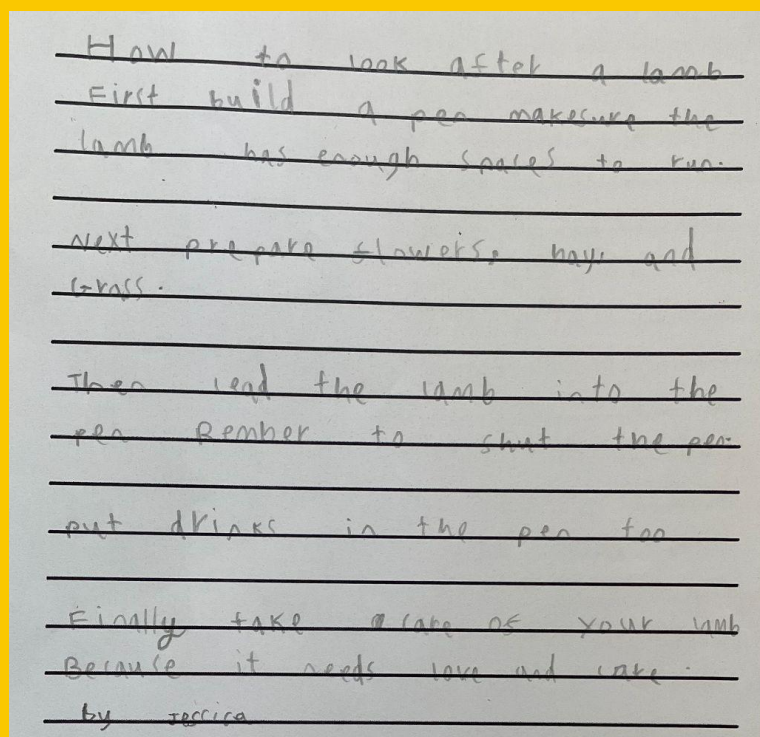 How to look after a lamb
First build a pen makesure the
lamb has enough spaces to run.
Next prepare flowers, hay, and
Grass.
Then lead the lamb into the
pen Rember to shut the pen.
put drinks in the pen too
Finally take care of your lamb
Because it needs love and care.
by Jessica